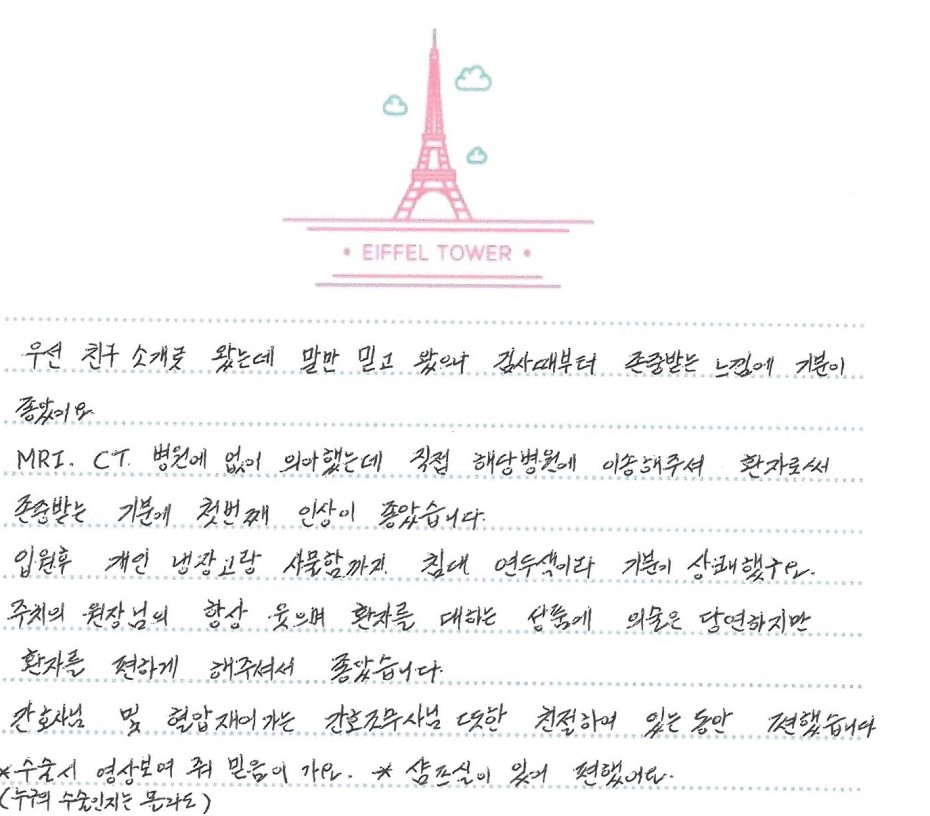 • EIFFEL TOWER •
우선 친구 소개로 왔는데 말만 믿고 왔으나 검사때부터 존중받는 느낌에 기분이
좋았어요
MRI. CT. 병원에 없어 의아했는데 직접 해당병원에 이송해주셔 환자로써
존중받는 기분에 첫번째 인상이 좋았습니다.
입원후 개인 냉장고랑 사물함까지. 침대 연두색이라 기분이 상쾌했구요.
주치의 원장님의 항상 웃으며 환자를 대하는 성품에 의술은 당연하지만
환자를 편하게 해주셔서 좋았습니다.
간호사님 및 혈압재어가는 간호조무사님 또한 친절하여 있는동안 편했습니다
*수술시 영상보여 줘 믿음이 가요. * 샴프실이 있어 편했어요.
(누구의 수술인지는 몰라도)